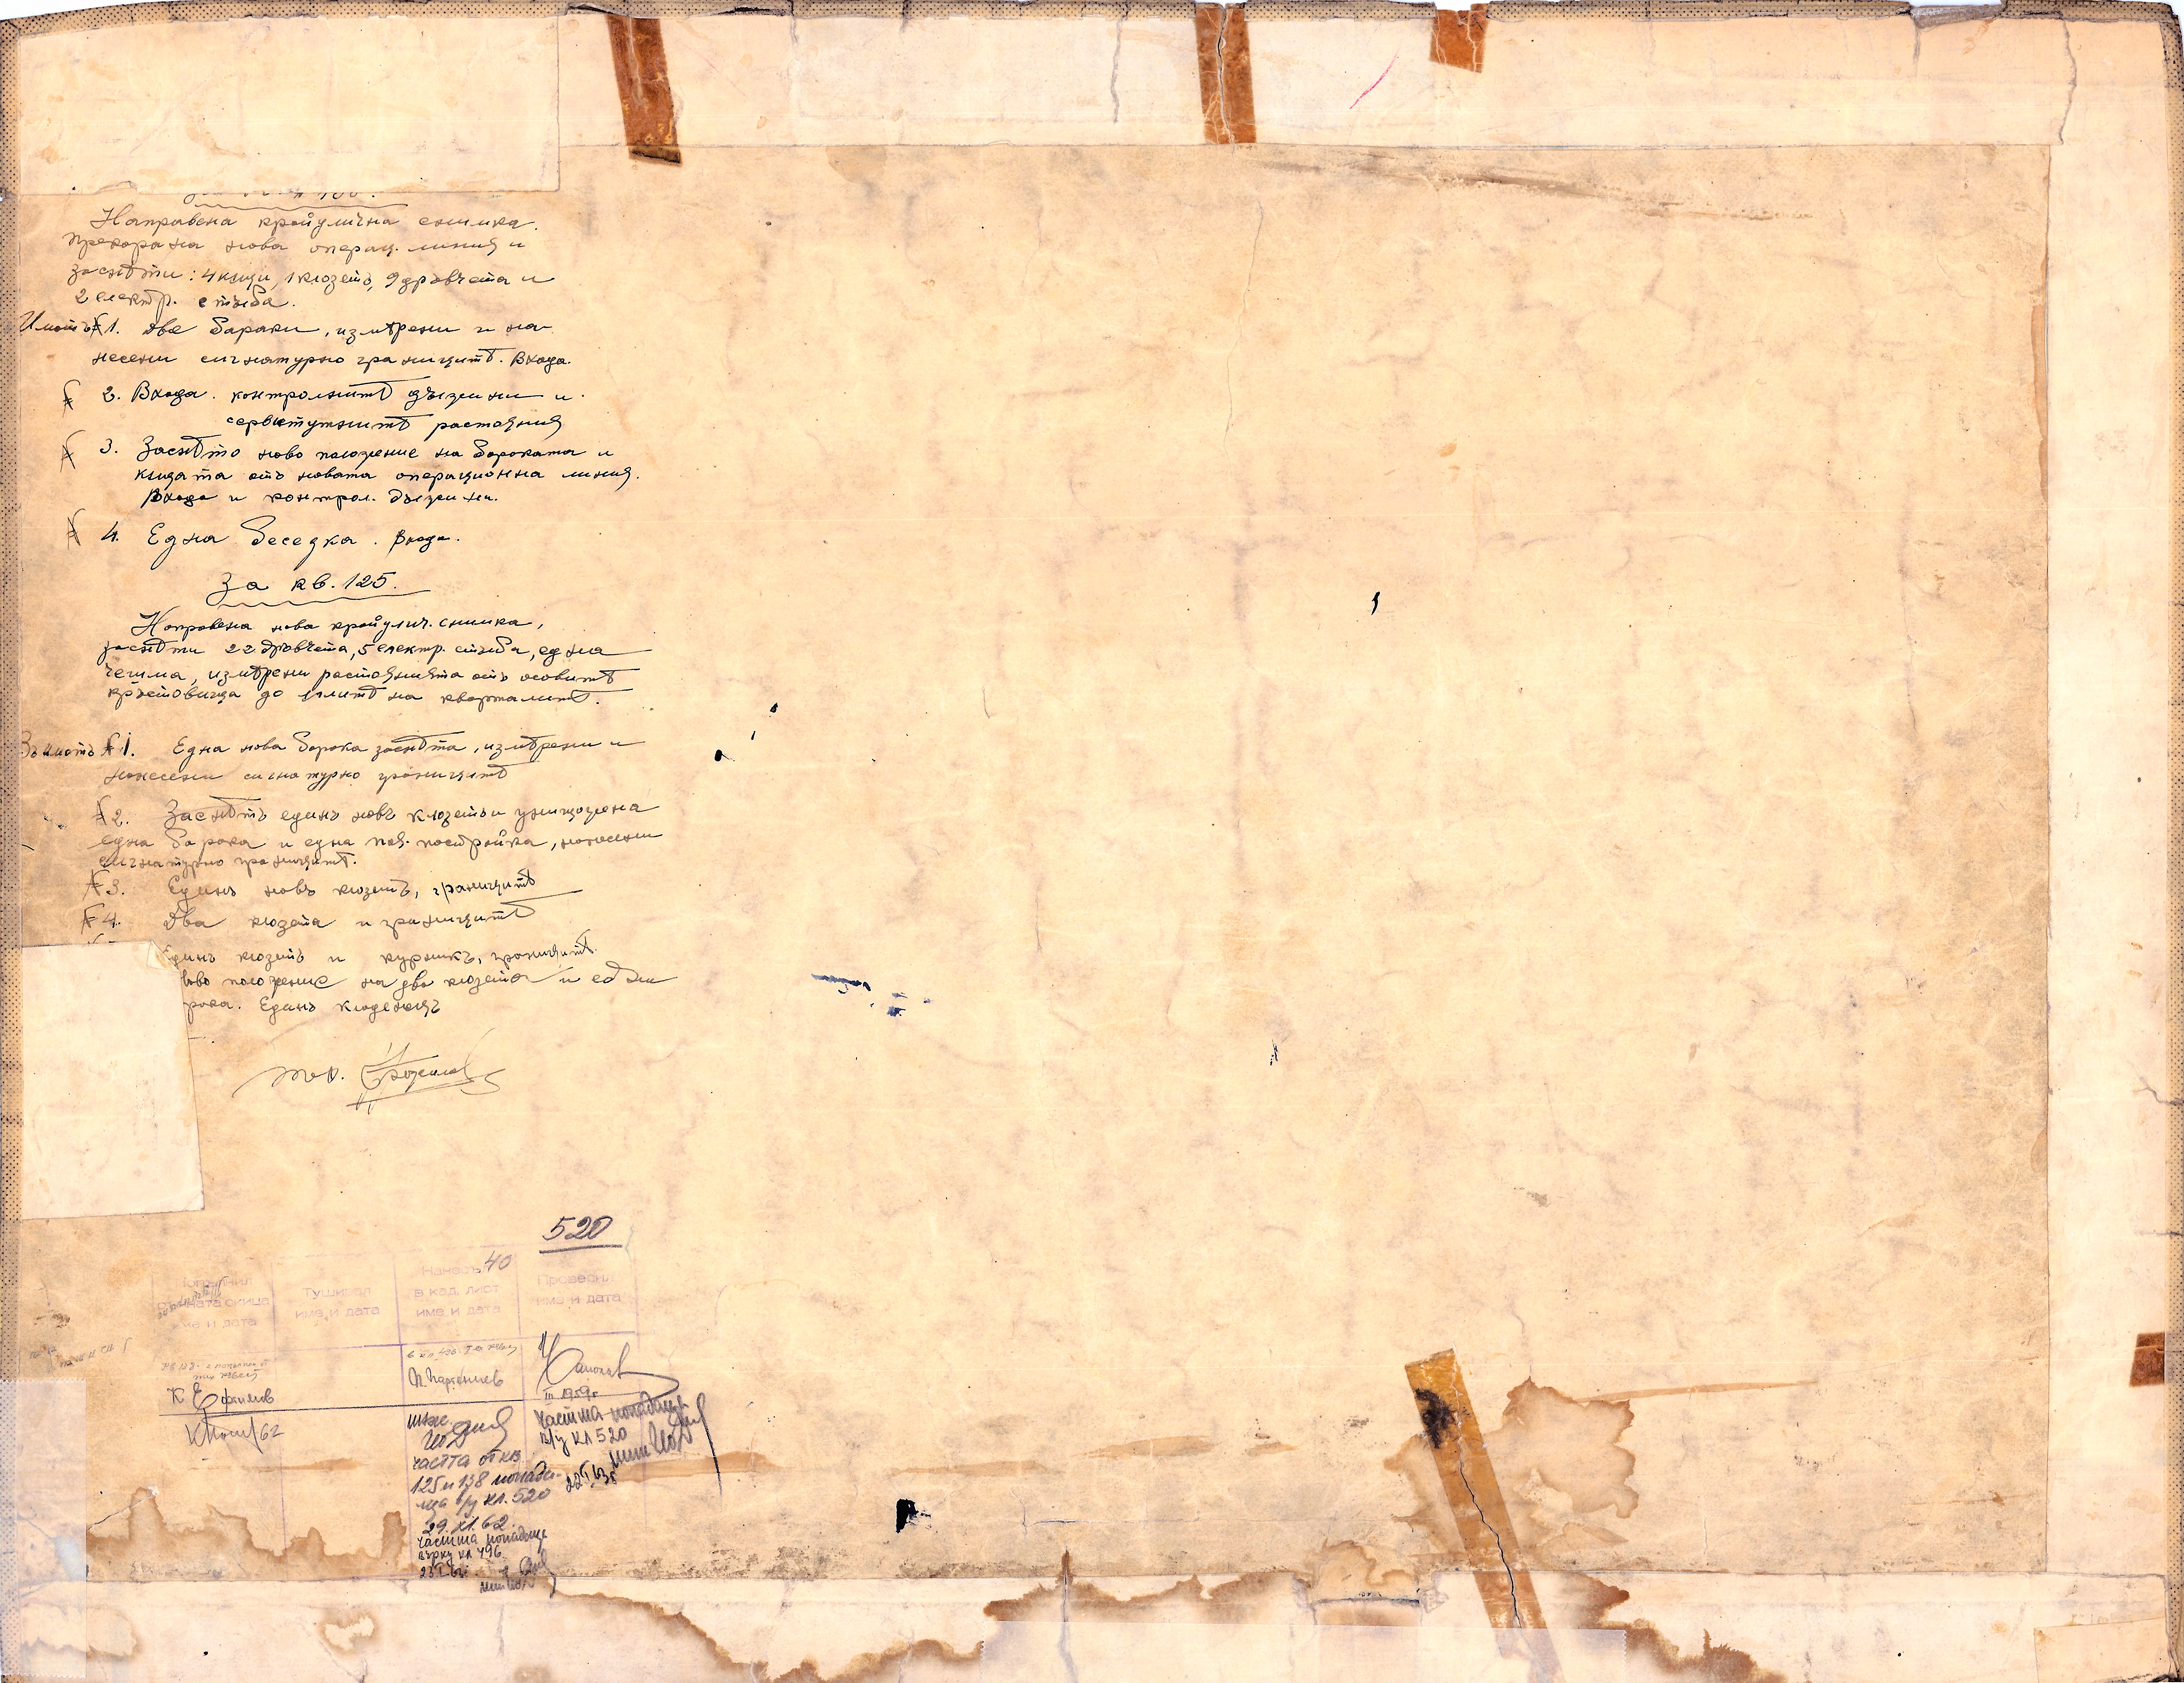 Направена крайулична снимка.
прекарана нова операц. линия и
заснѣти: 4 кѫщи, 1 клозетъ, 9 дръвчета и
2 електр. стълба.
Имотъ № 1. Две бараки, измѣрени и на-
несени сигнатурно границитѣ. Входа.
№ 2. Входа. контролнитѣ дължини и
сервитутнитѣ растояния
№ 3. Заснѣто ново положение на бараката и
кѫщата отъ новата операционна линия.
Входа и контрол. дължини.
№ 4. Една беседка. Входа.
За кв. 125.
Направена нова крайулич. снимка,
заснѣти 22 дръвчета, 5 електр. стълба, една
чешма, измѣрени растоянията отъ осовитѣ
кръстовища до ѫглитѣ на кварталитѣ.
Въ имотъ № 1. Една нова барака заснѣта, измѣрени и
нанесени сигнатурно границитѣ
№ 2. Заснѣтъ единъ новъ клозетъ и унищожена
една барака и една пол. постройка, нанесени
сигнатурно границитѣ.
№ 3. Единъ новъ клозетъ, границитѣ
№ 4. Два клозета и границитѣ
Единъ клозетъ и курникъ, границитѣ.
ново положение на два клозета и една
рака. Единъ кладенецъ
520
Попълнил
скица
име и дата
Туширал
име и дата
Нанесъл 40
в кад. лист
име и дата
Проверил
име и дата
К Ефтимов
П. Партениев
III 1959 г
62
инж.
частта от кв
125 и 138 попада-
ща в/у кл. 520
29.XI.62.
частта попадаща
върху кл 496
частта попадаща
в/у кл 520